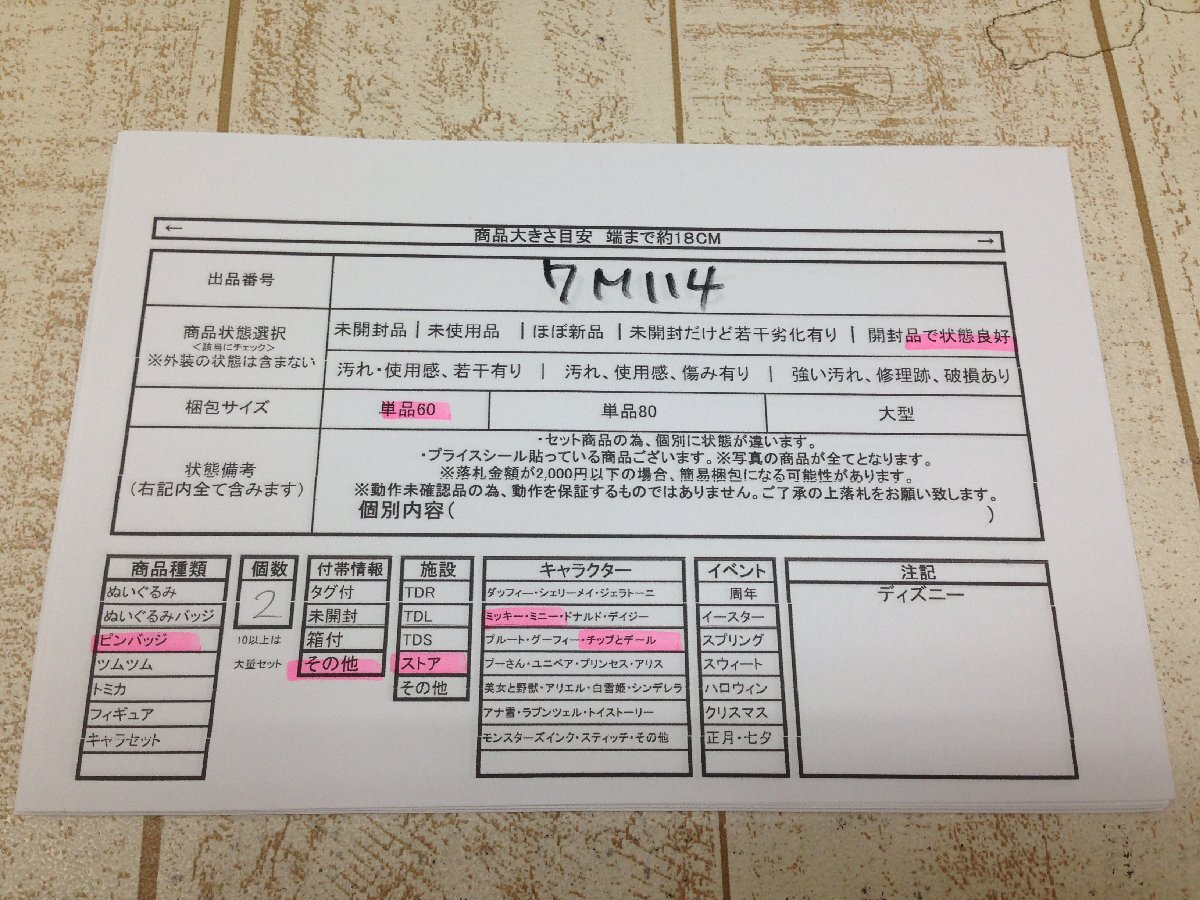 ← 商品大きさ目安 端まで約18CM →
出品番号 7M114
商品状態選択
<該当にチェック>
※外装の状態は含まない
未開封品 | 未使用品 | ほぼ新品 | 未開封だけど若干劣化有り | 開封品で状態良好
汚れ・使用感、若干有り | 汚れ、使用感、傷み有り | 強い汚れ、修理跡、破損あり
梱包サイズ 単品60 単品80 大型
状態備考
(右記内全て含みます)
・セット商品の為、個別に状態が違います。
・プライスシール貼っている商品ございます。※写真の商品が全てとなります。
※落札金額が2,000円以下の場合、簡易梱包になる可能性があります。
※動作未確認品の為、動作を保証するものではありません。ご了承の上落札をお願い致します。
個別内容( )
商品種類
ぬいぐるみ
ぬいぐるみバッジ
ピンバッジ
ツムツム
トミカ
フィギュア
キャラセット
個数
2
10以上は
大量セット
付帯情報
タグ付
未開封
箱付
その他
施設
TDR
TDL
TDS
ストア
その他
キャラクター
ダッフィー・シェリーメイ・ジェラトーニ
ミッキー・ミニー・ドナルド・デイジー
プルート・グーフィー・チップとデール
プーさん・ユニベア・プリンセス・アリス
美女と野獣・アリエル・白雪姫・シンデレラ
アナ雪・ラプンツェル・トイストーリー
モンスターズインク・スティッチ・その他
イベント
周年
イースター
スプリング
スウィート
ハロウィン
クリスマス
正月・七夕
注記
ディズニー